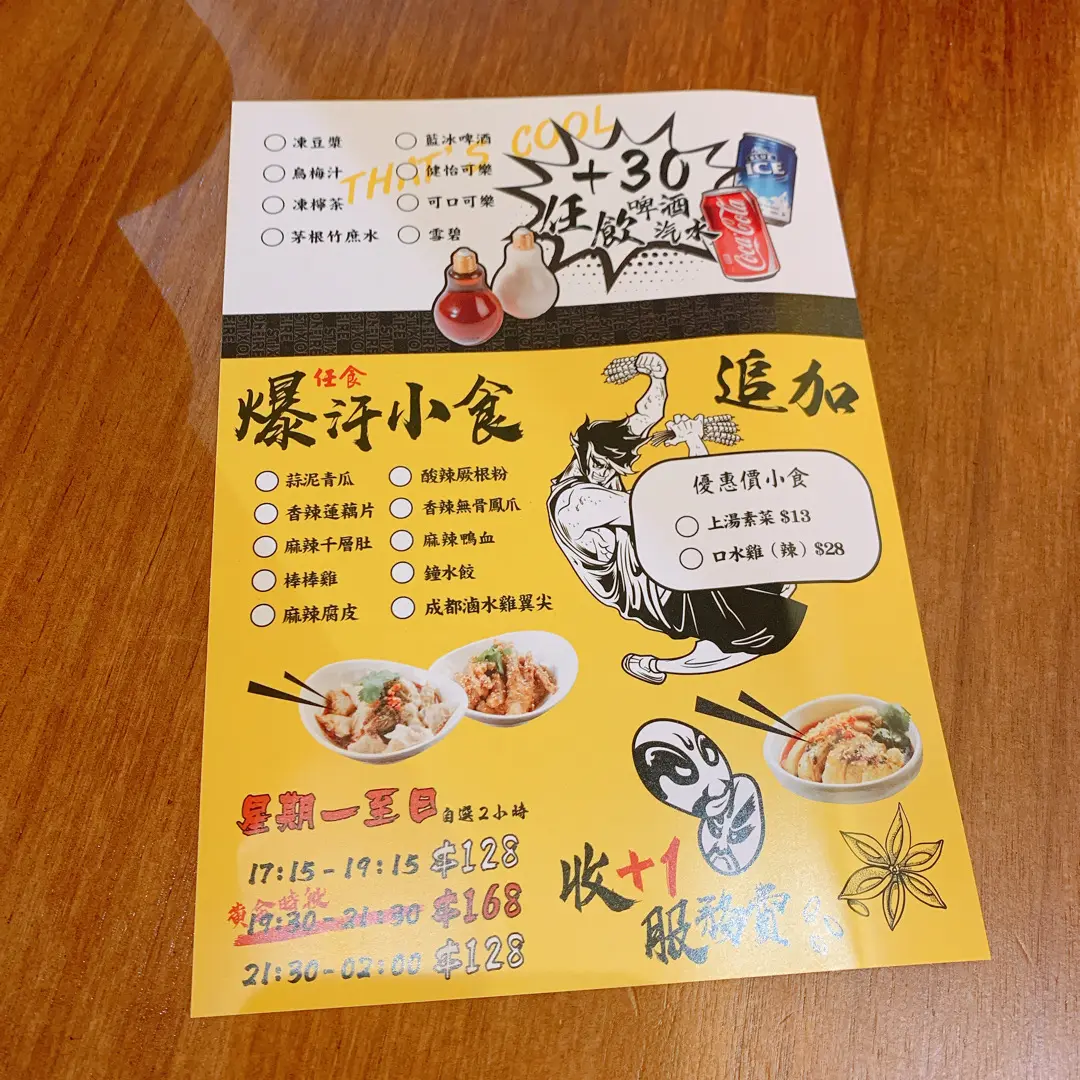 THAT'S COOL
凍豆漿
烏梅汁
凍檸茶
茅根竹庶水
藍冰啤酒
健怡可樂
可口可樂
雪碧
+30
任飲啤酒汽水
ICE
Coca-Cola
任食
爆汗小食
蒜泥青瓜
香辣蓮藕片
麻辣千層肚
棒棒雞
麻辣腐皮
酸辣厥根粉
香辣無骨鳳爪
麻辣鴨血
鐘水餃
成都滷水雞翼尖
追加
優惠價小食
上湯素菜 $13
口水雞（辣）$28
星期一至日自選2小時
17:15-19:15 $128
黃金時段
19:30-21:30 $168
21:30-02:00 $128
收+1
服務費